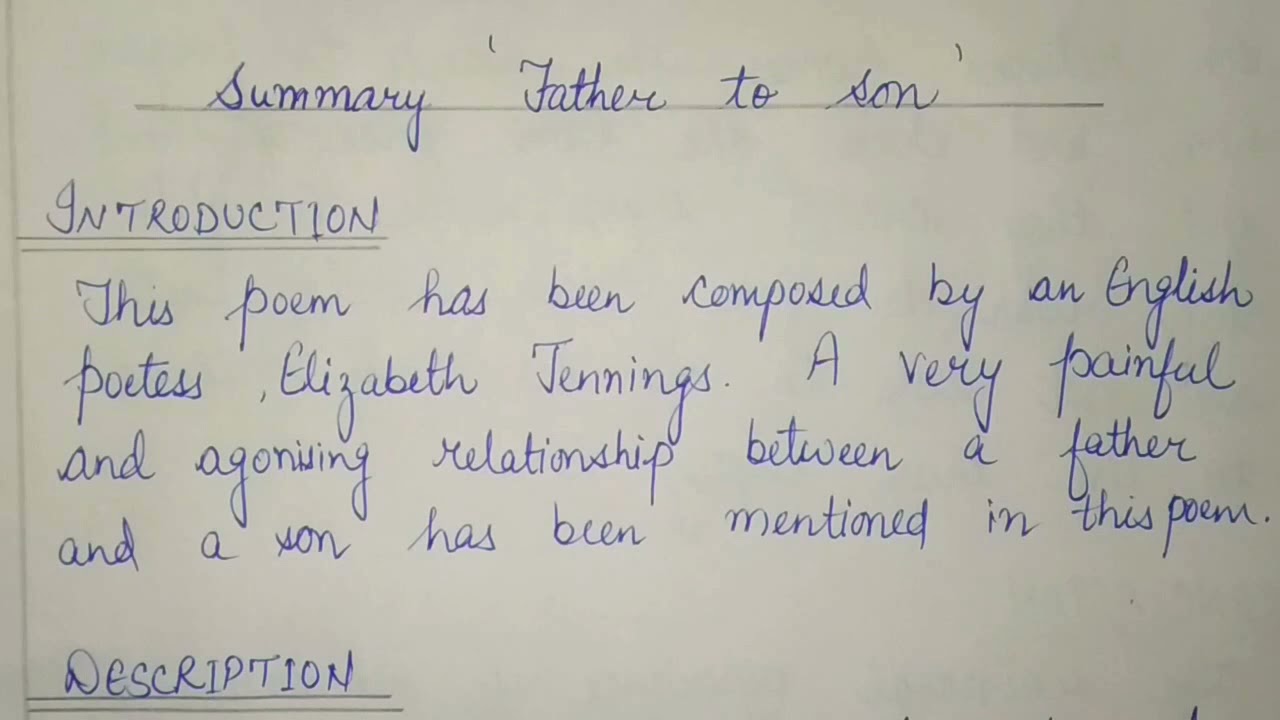 Summary 'Father to son'
INTRODUCTION
This poem has been composed by an English
poetess, Elizabeth Jennings. A very painful
and agonising relationship between a father
and a son has been mentioned in this poem.
DESCRIPTION